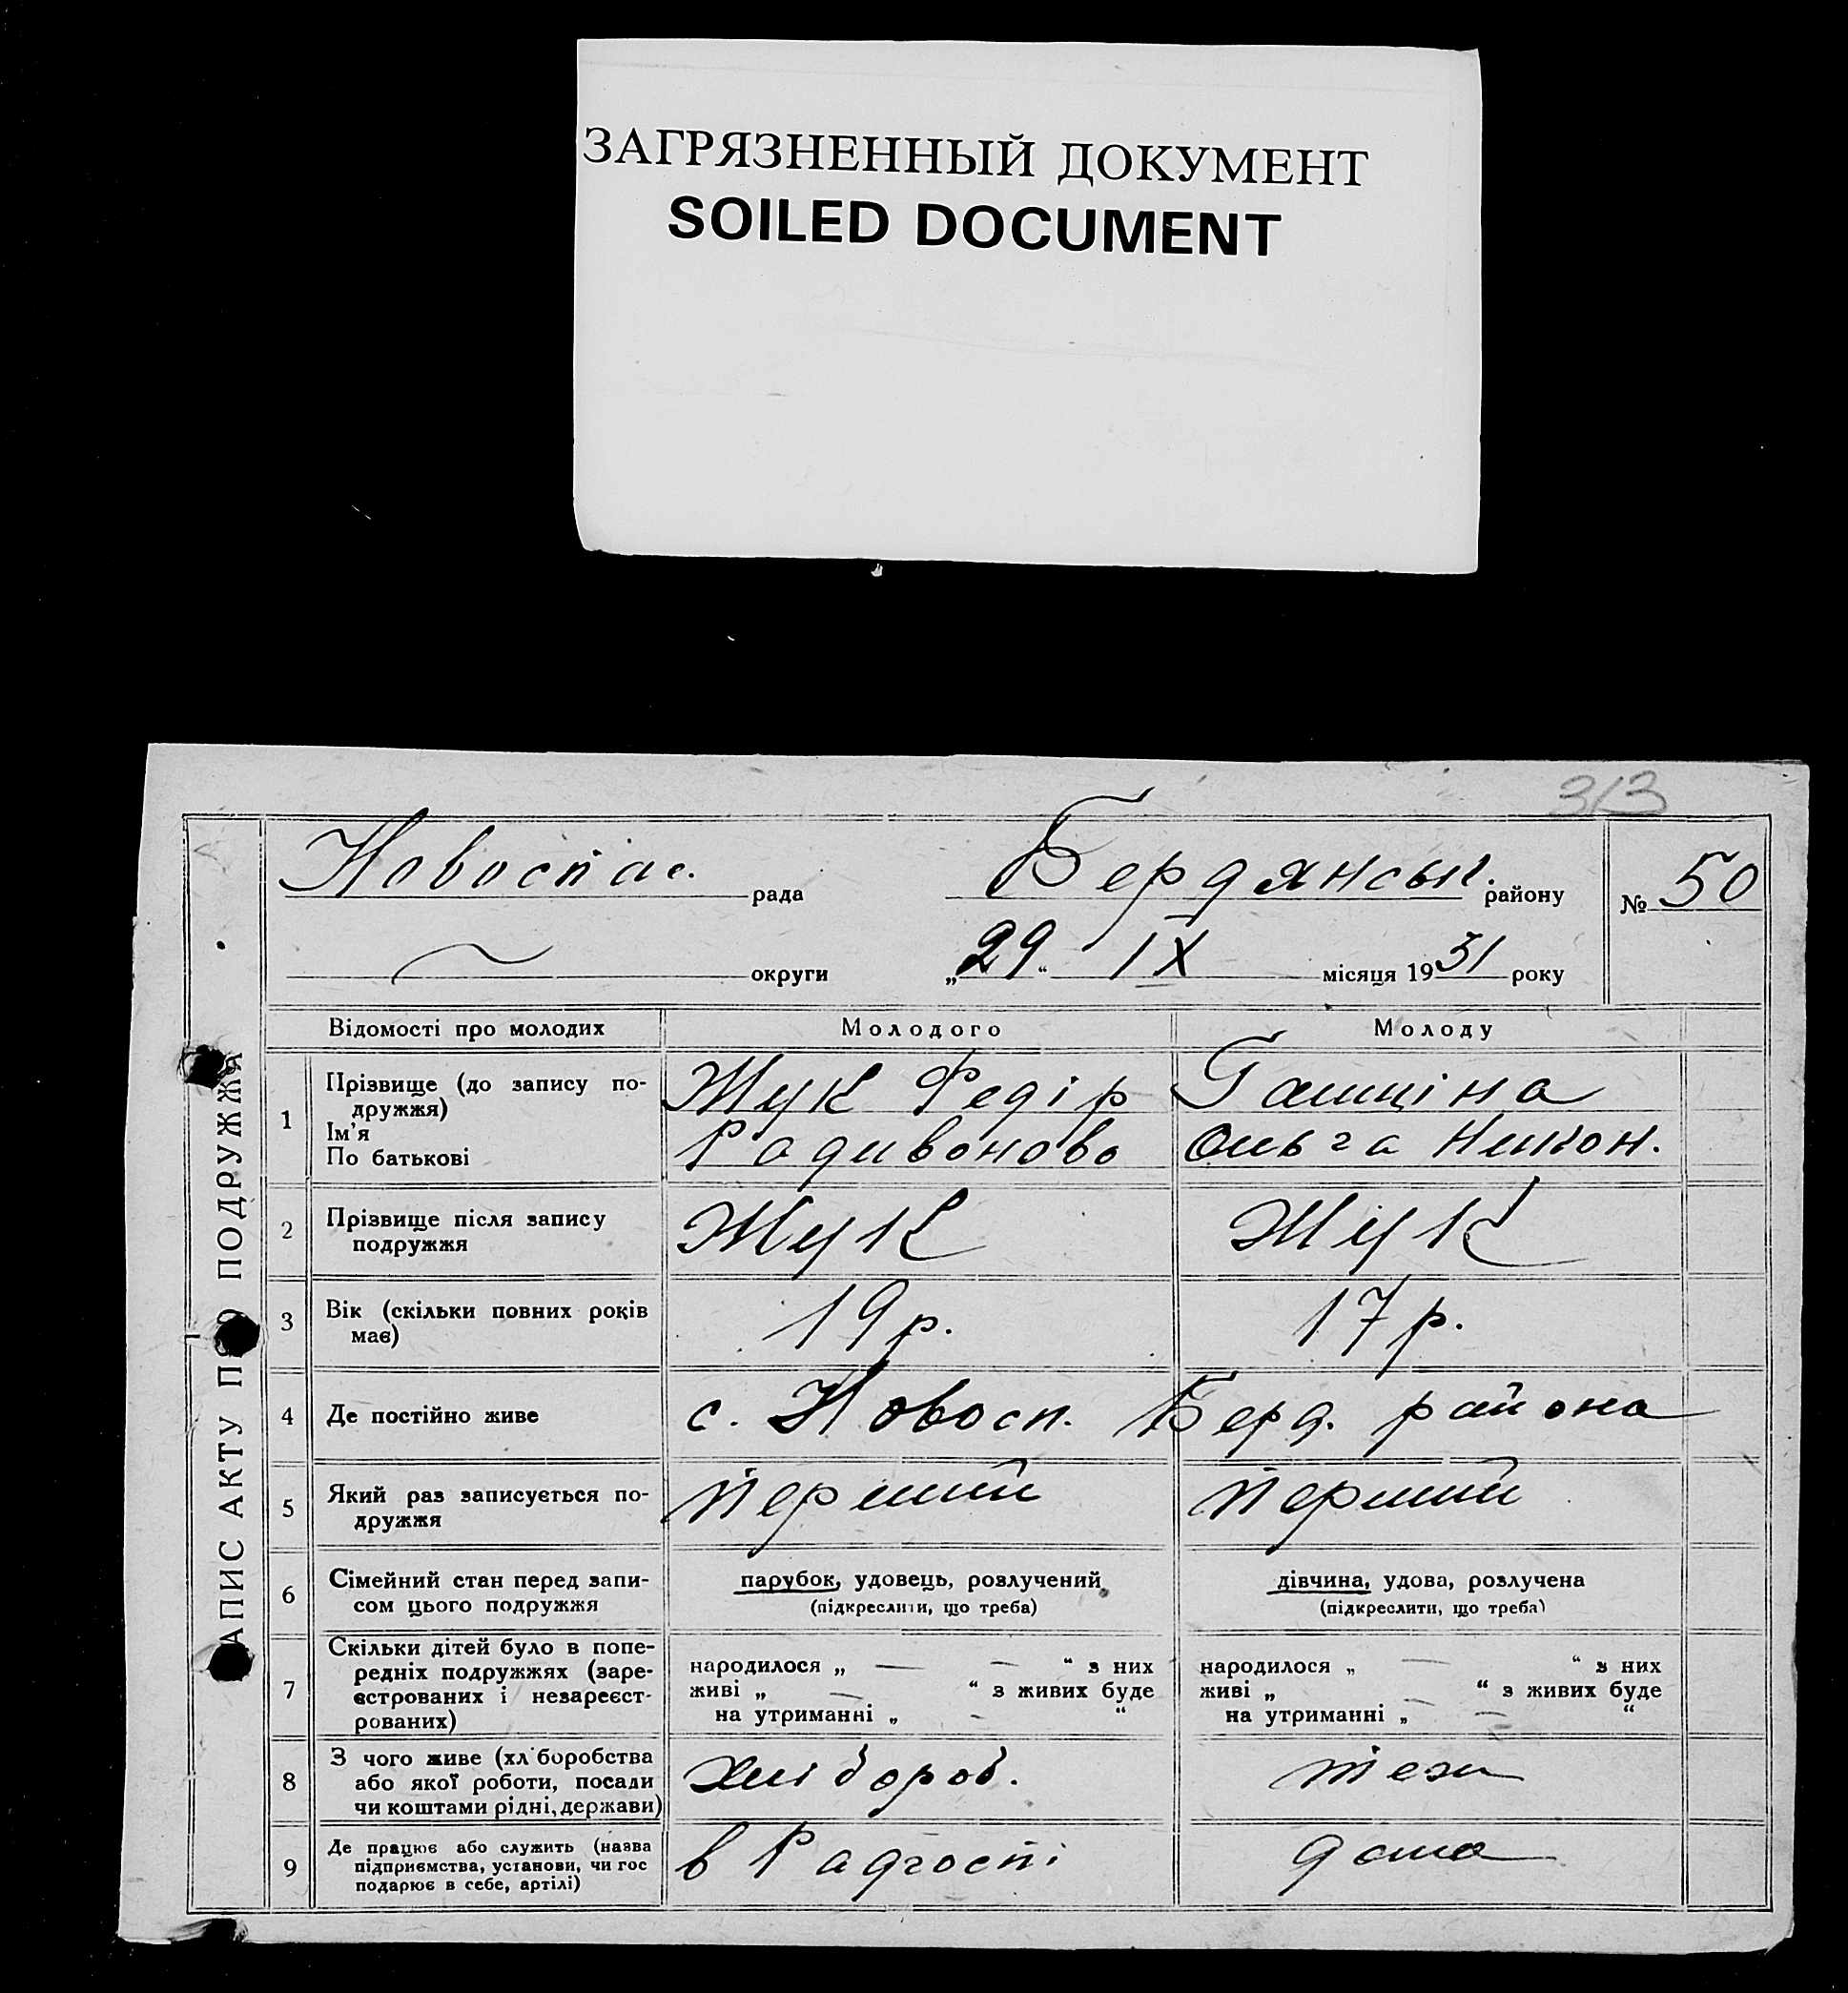 ЗАГРЯЗНЕННЫЙ ДОКУМЕНТ
SOILED DOCUMENT
313
Новоспас. рада Бердянськ. району № 50
округи „29“ IX місяця 1931 року
ЗАПИС АКТУ ПРО ПОДРУЖЖЯ
Відомості про молодих Молодого Молоду
1 Прізвище (до запису по-
дружжя)
Ім'я
По батькові
Жук Федір
Радивоново
Ольга Никон.
2 Прізвище після запису
подружжя
Жук Жук
3 Вік (скільки повних років
має)
19 р. 17 р.
4 Де постійно живе с. Новосп. Берд. района
5 Який раз записується по-
дружжя
Перший Перший
6 Сімейний стан перед запи-
сом цього подружжя
парубок, удовець, розлучений
(підкреслити, що треба)
дівчина, удова, розлучена
(підкреслити, що треба)
7 Скільки дітей було в попе-
редніх подружжях (заре-
єстрованих і незареєст-
рованих)
народилося „ — — “ з них
живі „ — “ з живих буде
на утриманні „ — “
народилося „ — “ з них
живі „ — “ з живих буде
на утриманні „ — “
8 З чого живе (хліборобства
або якої роботи, посади
чи коштами рідні, держави)
Хлібороб. теж
9 Де працює або служить (назва
підприємства, установи, чи гос
подарює в себе, артілі)
в Радгоспі дома